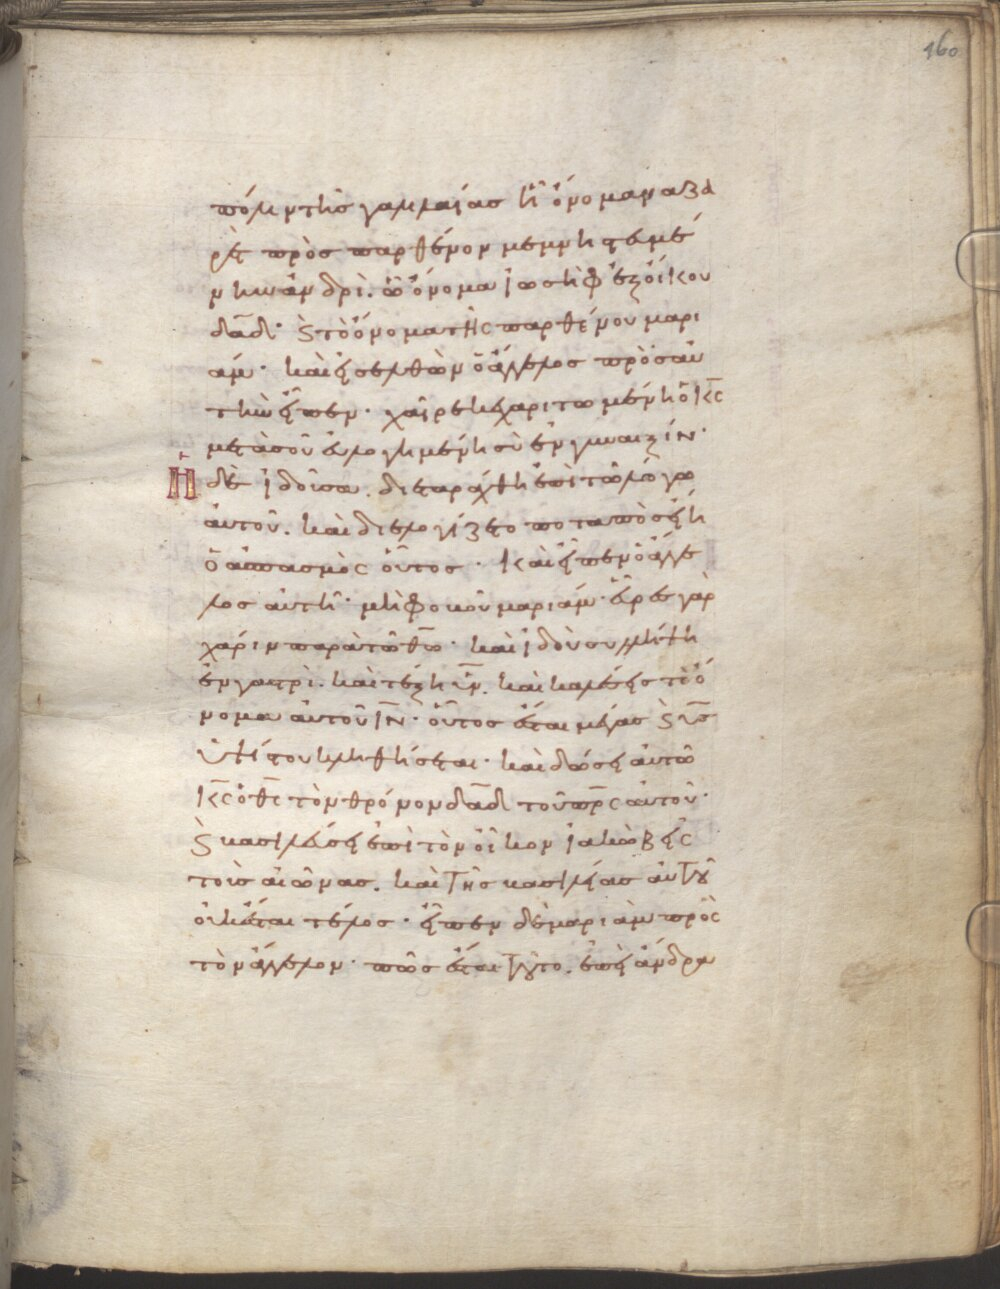 160
πόλιν τῆς γαλιλαίας ἧ ὄνομα ναζα
ρὲτ πρὸς παρθένον μεμνηστευμέ
νην ἀνδρὶ. ὧ ὄνομα ἰωσὴφ ἐξ οἴκου
δᾱδ· ϗ τὸ ὄνομα τῆς παρθένου μαρι
άμ· καὶ εἰσελθὼν ὁ ἄγγελος πρὸς αὐ
τὴν εἶπεν· χαῖρε κεχαριτωμένη ὁ κ̅ς̅
μετὰ σοῦ εὐλογημένη σὺ ἐν γυναιξίν·
Ἡ δὲ ἰδοῦσα. διεταράχθη ἐπὶ τῶ λόγω
αὐτοῦ. καὶ διελογίζετο ποταπὸς εἴη
ὁ ἀσπασμὸς οὗτος· καὶ εἶπεν ὁ ἄγγε
λος αὐτῆ· μὴ φοβοῦ μαριάμ· εὗρες γὰρ
χάριν παρὰ τῶ θ̅ω̅· καὶ ἰδοὺ συλλήψη
ἐν γαστρὶ. καὶ τέξη υ̅ν̅. καὶ καλέσεις τὸ ὄ
νομα αὐτοῦ ι̅ν̅· οὗτος ἔσται μέγας ϗ υ̅ς̅
ὑψίστου κληθήσεται· καὶ δώσει αὐτῶ
κ̅ς̅ ὁ θ̅ς̅ τὸν θρόνον δᾱδ τοῦ π̅ρ̅ς̅ αὐτοῦ·
ϗ βασιλεύσει ἐπὶ τὸν οἶκον ἰακὼβ εἰς
τοὺς αἰῶνας. καὶ τῆς βασιλείας αὐτοῦ
οὐκ ἔσται τέλος· εἶπεν δὲ μαριὰμ πρὸς
τὸν ἄγγελον· πῶς ἔσται τοῦτο. ἐπεὶ ἄνδρα